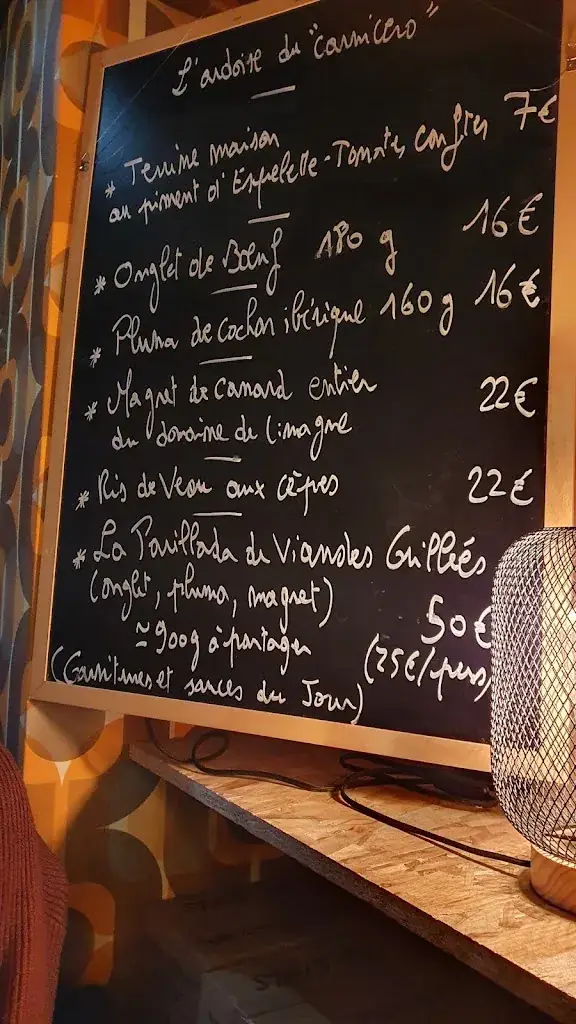 L'ardoise du "carnicero"
* Terrine maison
au piment d'Espelette - Tomates confites 7€
* Onglet de Bœuf 180 g 16€
* Pluma de cochon ibérique 160g 16€
* Magret de canard entier
du domaine de Limagne 22€
* Ris de Veau aux cèpes 22€
* La Parillada de Viandes Grillées
(onglet, pluma, magret) 50€
≃ 900g à partager (25€/pers)
(Garnitures et sauces du Jour)